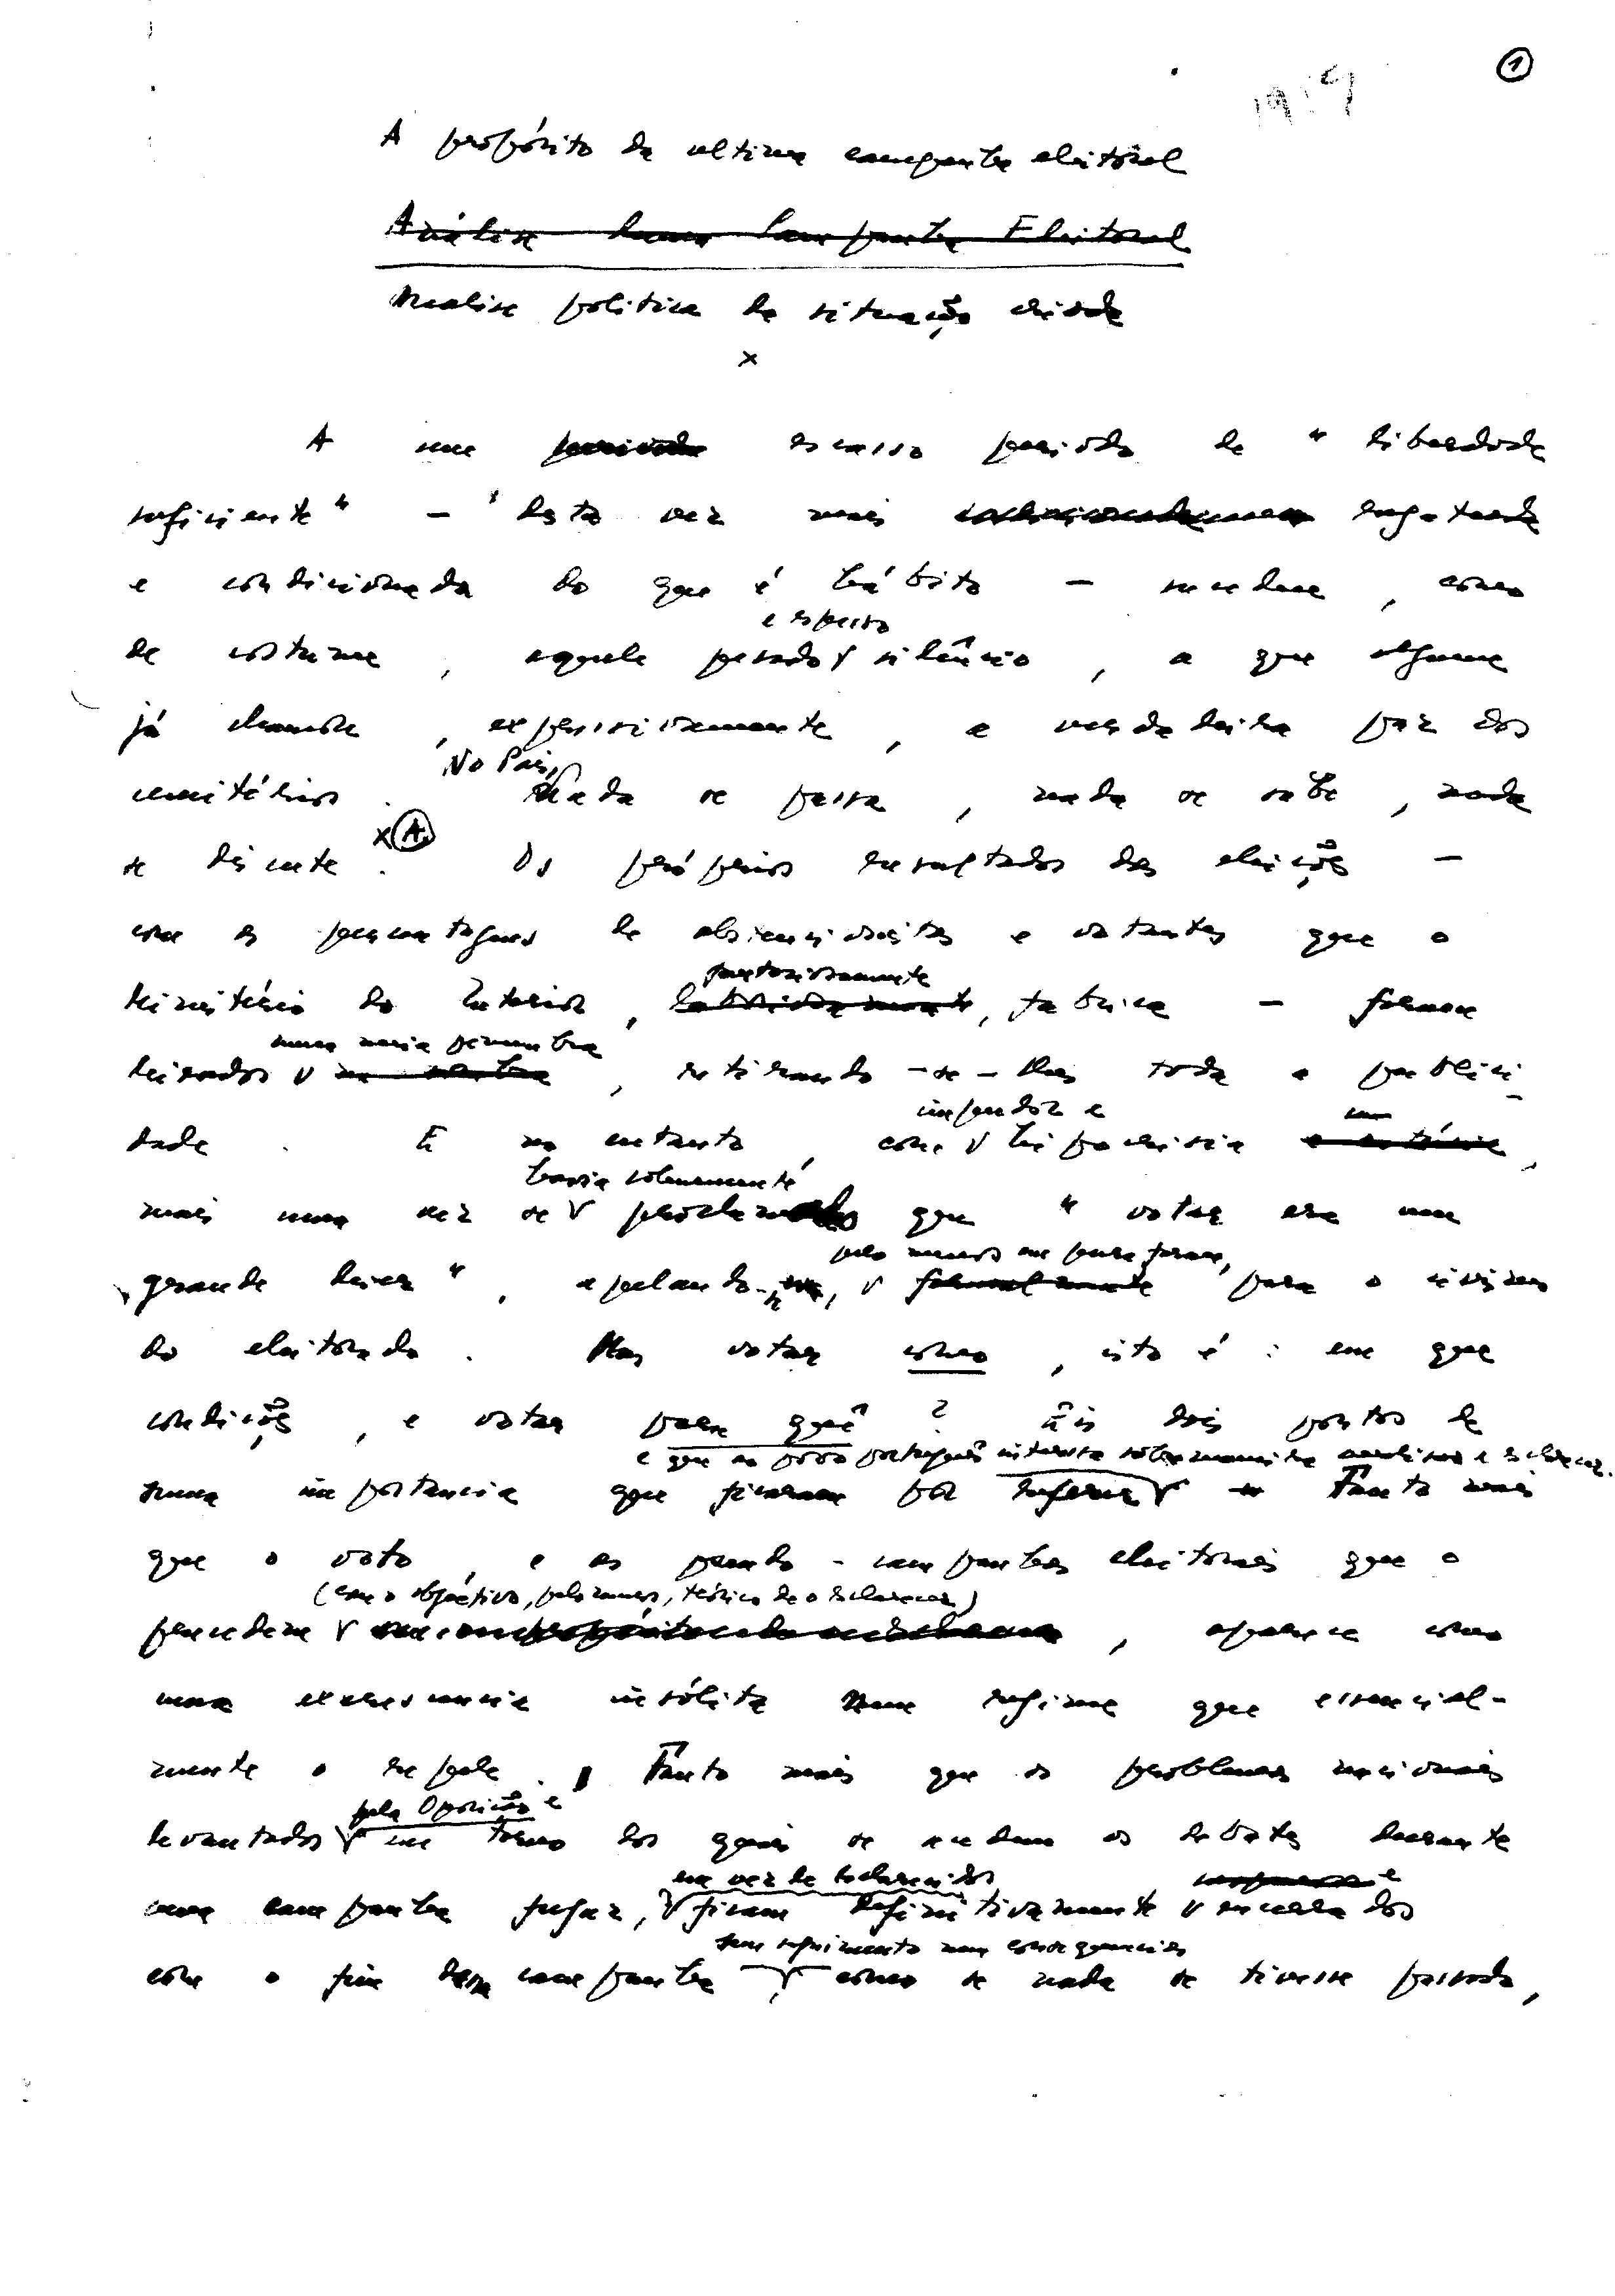 1
A propósito da ultima campanha eleitoral
Análise duma Campanha Eleitoral
Análise política da situação
x
A um periodo escasso periodo de " liberdade
suficiente " — desta vez mais
e condicionada do que é hábito — sucedeu, como
e espesso
de costume, aquele pesado silêncio, a que alguem
já chamou, expressivamente, a verdadeira paz dos
No País,
cemitérios. Nada se passa, nada se sabe, nada
x A
se discute. Os próprios resultados das eleições —
com as percentagens de abstencionistas e votantes que o
fantasiosamente
Ministério do Interior, laboriosamente, fabrica — foram
numa meia penumbra
deixados na sombra, retirando-se-lhes toda a publici-
impudor e
dade. E no entanto, com hipocrisia
havia solenemente
mais uma vez se proclamado que " votar era um
pelo menos em pura forma,
grande dever ", apelando-se, formalmente para o civismo
do eleitorado. Mas votar como, isto é: em que
condições, e votar para quê? Eis dois pontos de
e que ao povo português interessa sobremaneira analisar e esclarecer.
suma importancia que ficaram por Tanto mais
que o voto, e as pseudo-campanhas eleitorais que o
(com o objectivo, pelo menos, teórico de o esclarecer)
precedem, aparece como
uma excrescencia insólita num regime que essencial-
mente o repele. Tanto mais que os problemas nacionais
pela Oposição e
levantados em torno dos quais se acendem os debates durante
em vez de esclarecidos
uma campanha fugaz, ficam definitivamente encerrados
sem seguimento nem consequencias
com o fim dessa campanha como se nada se tivesse passado,